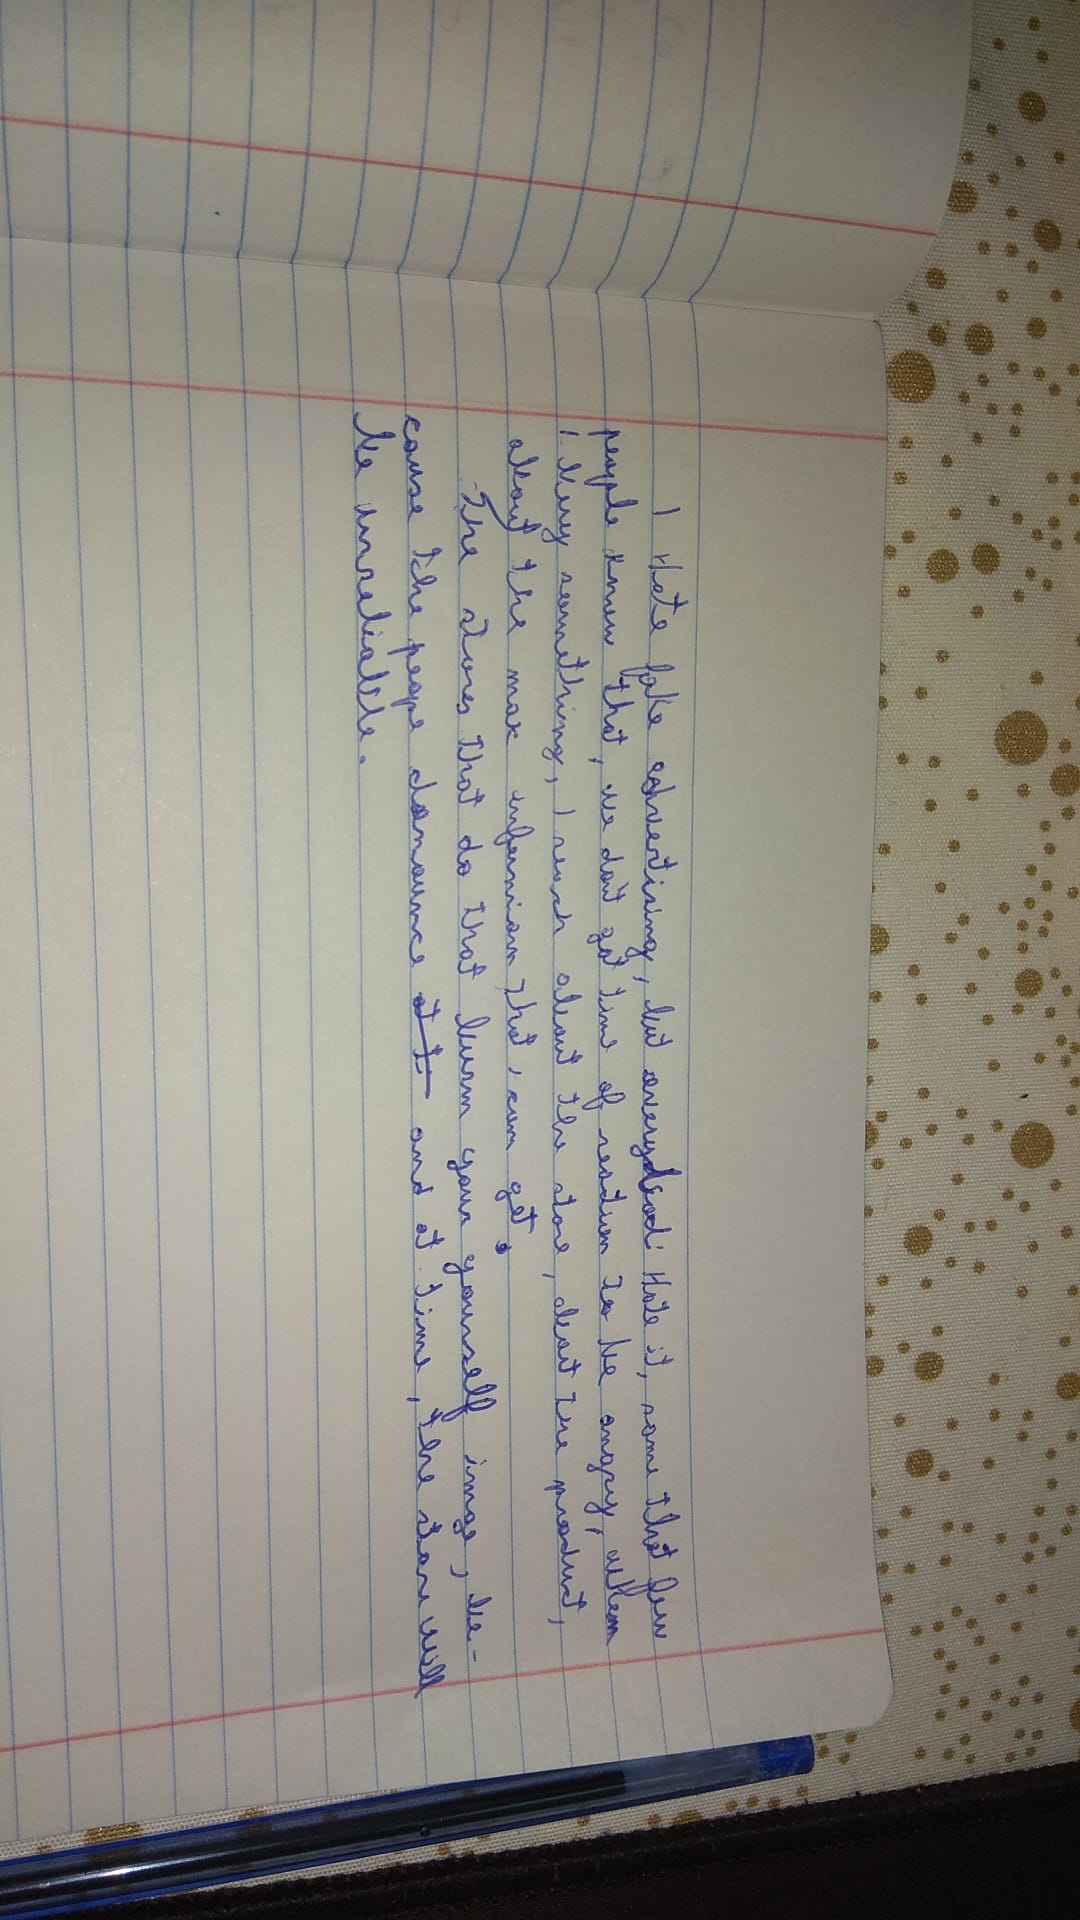 I Hate fake advertising, but everybod: Hate it, some that few
people know that, we don't get time of reaction to be angry, when
I buy something, I serch about the store, about the product,
about the max infornion that i can get.
The stores that do that burn your yourself image, be-
cause the peope donounce and at time, the store will
be unreliable.